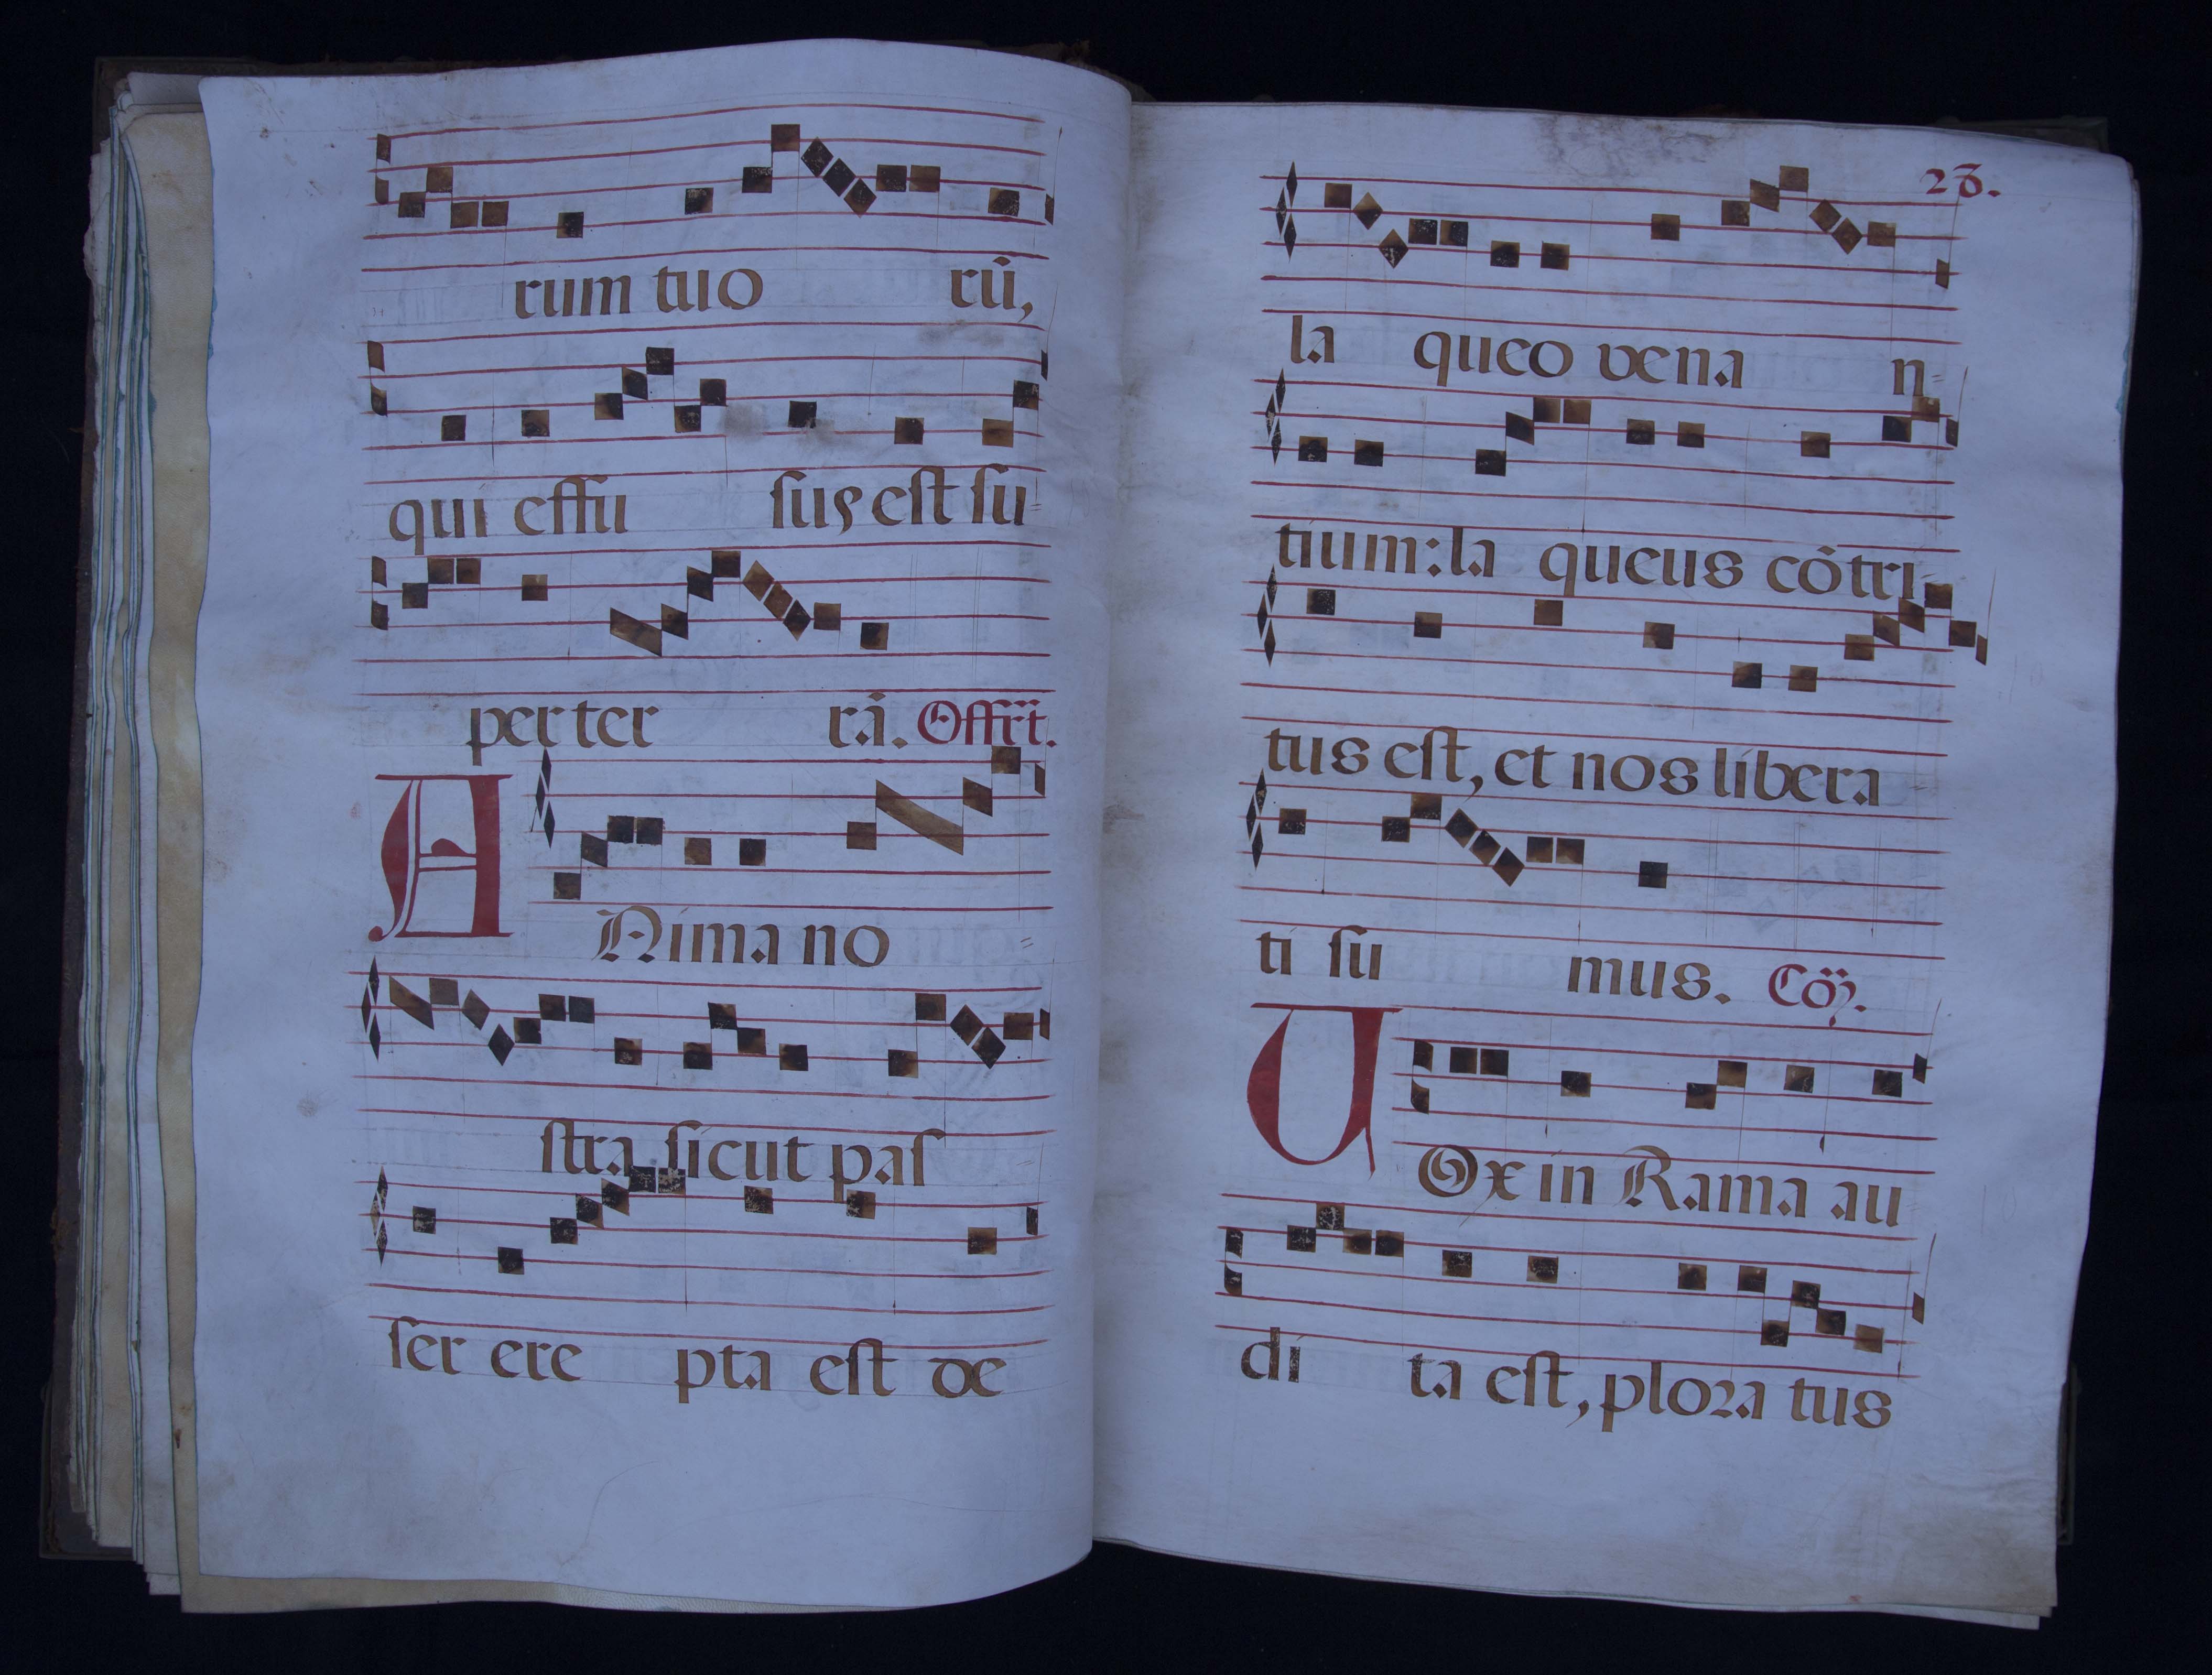 rum tuo rũ,
qui effu ſuꝰ eſt ſu=
per ter rã. Offrt.
ANima no =
ſtra ſicut paſ =
ſer ere pta eſt de
28.
la queo vena n=
tium: la queus cõtri=
tus eſt, et nos libera
ti ſu mus. Cõ.
VOx in Rama au
di ta eſt, ploꝛa tus